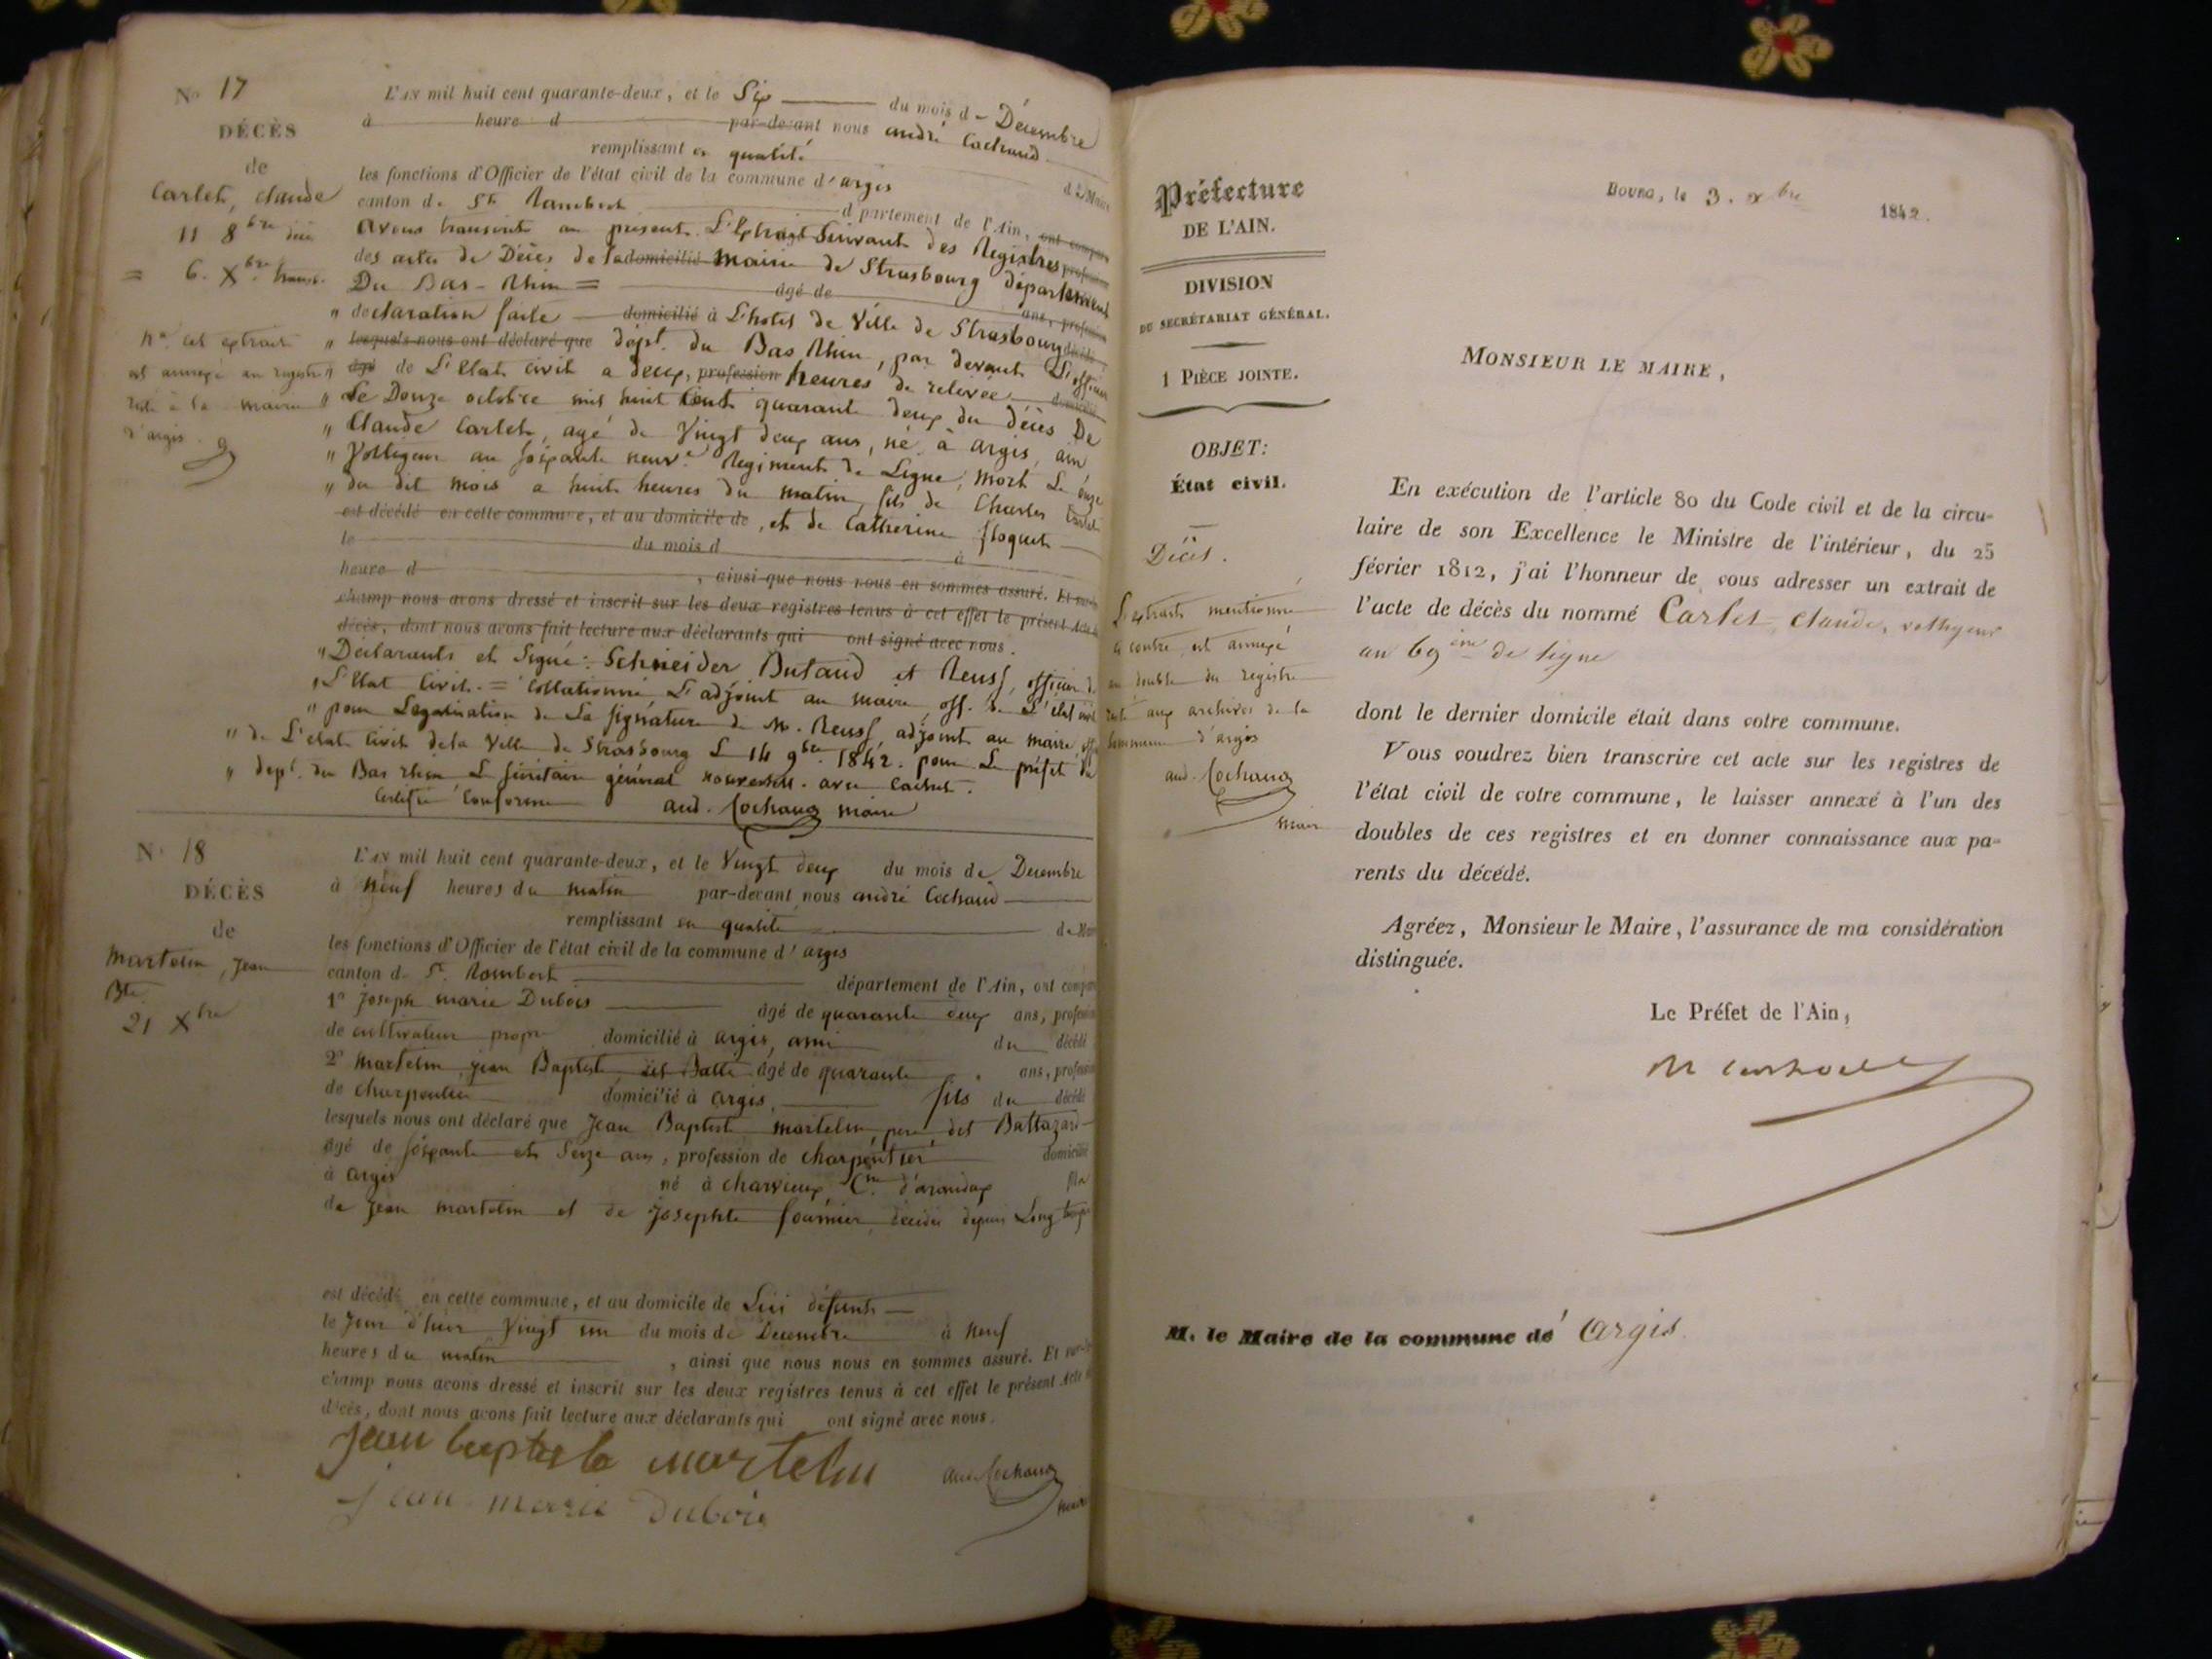 No 17
DÉCÈS
de
Carlet, claude
11 8bre décé
= 6. Xbre transc.
Na. cet extrait
est annexé au registre
resté à la mairie
d'argis.
L'AN mil huit cent quarante-deux, et le Six du mois d Décembre
à heure d par-devant nous andré Cochaud
remplissant en qualité de Maire
les fonctions d'Officier de l'état civil de la commune d'argis
canton de St Rambert département de l'Ain, ont comparu
avons transcrit au présent L'Extrait Suivant des Registres
des actes de Décès de la domicilié mairie de Strasbourg département
Du Bas-Rhin = âgé de ans, profession
" declaration faite domicilié à L'hotel de Ville de Strasbourg
" lesquels nous ont déclaré que dépt. du Bas Rhin, par devant L'officier
" âgé de L'Etat civil a deux, profession heures de relevée domicilié
" Le Douze octobre mil huit Cent quarante deux du décès De
" Claude Carlet, agé de Vingt deux ans, né à argis, ain
" Voltigeur au soixante neuve Regiment de Ligne, mort Le onze
" du dit mois a huit heures du matin, fils de Charles Carlet
est décédé en cette commune, et au domicile de , et de Catherine floquet
le du mois d à
heure d , ainsi que nous nous en sommes assuré. Et sur-le-
champ nous avons dressé et inscrit sur les deux registres tenus à cet effet le présent Acte de
décès, dont nous avons fait lecture aux déclarants qui ont signé avec nous.
" Déclarants et Signé: Schneider Butaud et Reuss, officier de
" L'Etat Civil. = Collationné L'adjoint au maire, off. de L'état civil
" pour Légalisation de La signature de M. Reuss, adjoint au maire, off
" de L'état Civil de la Ville de Strasbourg L 14 9bre 1842. pour L préfet du
" dept. du Bas rhin L sécrétaire général avec cachet.
Certifié Conforme and. Cochaud maire
No 18
DÉCÈS
de
Martelin, Jean
Bte
21 Xbre
L'AN mil huit cent quarante-deux, et le Vingt deux du mois de Decembre
à Neuf heures du matin par-devant nous andré Cochaud
remplissant en qualité de Maire
les fonctions d'Officier de l'état civil de la commune d'argis
canton de St. Rambert département de l'Ain, ont comparu
1o joseph marie Dubois âgé de quarante deux ans, profession
de cultivateur propre domicilié à argis, ami du décédé
2o Martelin jean Baptiste dit Balte âgé de quarante ans, profession
de charpentier domicilié à argis, fils du décédé
lesquels nous ont déclaré que Jean Baptiste martelin, pere, dit Baltazard
âgé de soixante et Seize ans, profession de charpentier domicilié
à argis né à charvieux Cne d'arandaz fils
de Jean martelin et de Josephte fournier décédés depuis Long temps
est décédé en cette commune, et au domicile de Lui défunt
le Jour d'hier Vingt un du mois de Decembre à Neuf
heures du matin , ainsi que nous nous en sommes assuré. Et sur-le-
champ nous avons dressé et inscrit sur les deux registres tenus à cet effet le présent Acte de
décès, dont nous avons fait lecture aux déclarants qui ont signé avec nous.
jean baptiste martelin and. Cochaud
jean marie Dubois maire
Préfecture
DE L'AIN.
DIVISION
DU SECRÉTARIAT GÉNÉRAL.
1 PIÈCE JOINTE.
OBJET:
État civil.
Décès.
L'extrait mentionné
ci contre est annexé
au double du registre
resté aux archives de la
commune d'argis
and. Cochaud
maire
BOURG, le 3. Xbre 1842.
MONSIEUR LE MAIRE,
En exécution de l'article 80 du Code civil et de la circu-
laire de son Excellence le Ministre de l'intérieur, du 25
février 1812, j'ai l'honneur de vous adresser un extrait de
l'acte de décès du nommé Carlet, claude, voltigeur
au 69ème de ligne
dont le dernier domicile était dans votre commune.
Vous voudrez bien transcrire cet acte sur les registres de
l'état civil de votre commune, le laisser annexé à l'un des
doubles de ces registres et en donner connaissance aux pa-
rents du décédé.
Agréez, Monsieur le Maire, l'assurance de ma considération
distinguée.
Le Préfet de l'Ain,
M. le Maire de la commune de Argis